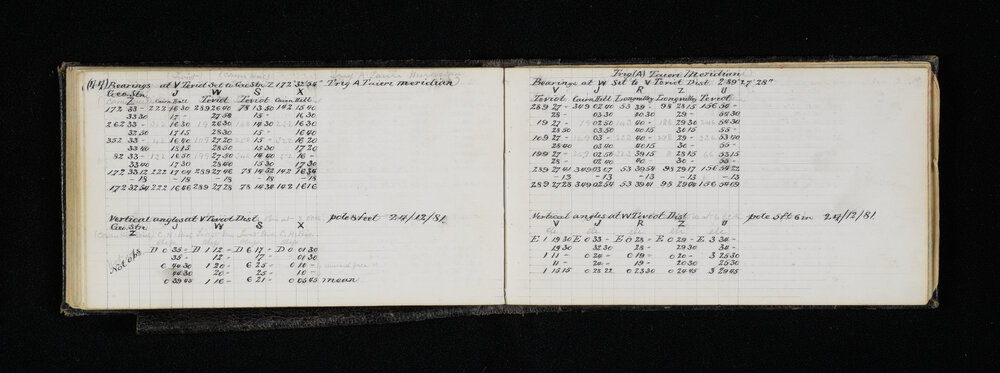 Bearings at V Teviot Set to Geo. Stn. Z 172° 32' 54" Trig A Taieri meridian
Geo. Stn. J W S X
Z Cairn Hill Teviot Teviot Cairn Hill
172 33 - 222 16 30 289 26 40 78 13 50 142 15 40
33 30 17 - 27 50 15 - 16 30
262 33 - 16 30 26 30 14 30 16 30
32 50 17 15 28 30 15 - 16 40
352 33 - 16 40 27 20 15 - 16 20
33 40 18 15 28 50 15 30 17 20
82 33 - 16 50 27 50 14 40 16 -
33 40 17 30 28 40 15 30 17 30
172 33 12 222 17 04 289 27 46 78 14 52 142 16 34
-18 -18 -18 -18 -18
172 32 54 222 16 46 289 27 28 78 14 34 142 16 16
Vertical angles at V Teviot Dist. pole 5 feet 24/12/81
Geo. Stn. J W S X
Z
Not obs D 0 35 - D 1 12 - D 6 17 - D 0 01 30
35 - 12 - 17 - 01 30
0 44 30 1 20 - 6 25 - 0 10 -
44 30 20 - 25 - 10 -
0 39 45 1 16 - 6 21 - 0 05 45 mean
Trig (A) Taieri Meridian
Bearings at W Set to V Teviot Dist. 289° 27' 28"
V J R Z U
Teviot Cairn Hill Longvalley Longvalley Teviot
289 27 - 349 02 40 53 39 - 98 28 15 156 54 -
28 - 03 30 40 30 29 - 54 30
19 27 - 02 50 40 - 29 30 54 30
28 50 03 50 40 15 30 15 55 -
109 27 - 03 - 40 - 29 - 53 40
28 40 03 40 40 15 30 - 55 -
199 27 - 02 50 39 15 28 15 53 15
28 - 02 40 40 - 30 - 55 -
289 27 41 349 03 07 53 39 54 98 29 17 156 54 22
-13 -13 -13 -13 -13
289 27 28 349 02 54 53 39 41 98 29 04 156 54 09
Vertical angles at W Teviot Dist pole 5 ft 6 in 24/12/81
V J R Z U
E 1 19 30 E 0 33 - E 0 28 - E 0 29 - E 3 34 -
19 30 32 30 28 - 29 30 34 -
1 11 - 0 24 - 0 19 - 0 20 - 3 25 30
11 - 24 - 19 - 20 30 25 30
1 15 15 0 28 22 0 23 30 0 24 45 3 29 45